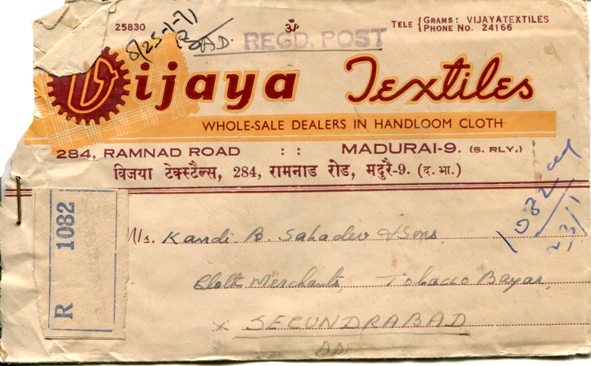 25830
ॐ
TELE { GRAMS: VIJAYATEXTILES
PHONE No. 24166
REGD. POST
Vijaya Textiles
WHOLE-SALE DEALERS IN HANDLOOM CLOTH
284, RAMNAD ROAD :: MADURAI-9. (S. RLY.)
विजया टेक्स्टैल्स, 284, रामनाड रोड, मदुरै-9. (द. भा.)
R 1082
M/s. Kandi B. Sahadev & Sons
Cloth Merchants, Tobacco Bazar,
x SECUNDRABAD
1082
23/1